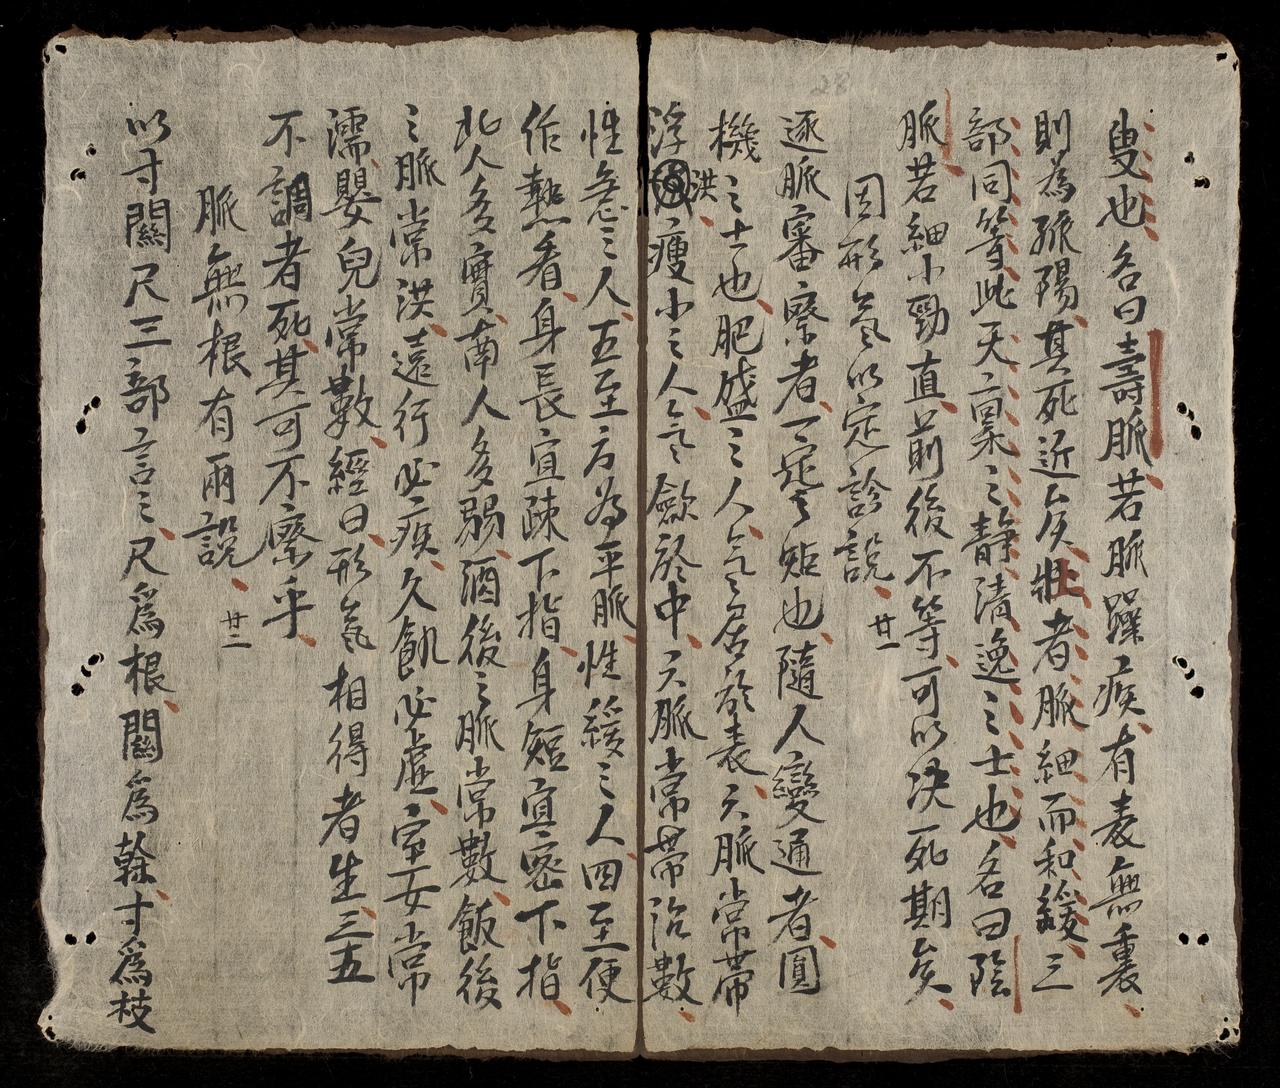 叟也名曰壽脈若脈躁疾有表無裏
則為孤陽其死近矣壯者脈細而和緩三
部同等此天稟之靜清逸之士也名曰陰
脈若細小勁直前後不等可以决死期矣
因形氣以定診說 廿一
逐脈審察者一定之䂨也隨人變通者圓
機之士也肥盛之人氣居於表六脈常帶
浮洪瘦小之人氣斂於中六脈常帶沉數
性急之人五至方為平脈性緩之人四至便
作熱看身長宜疎下指身短宜密下指
北人多實南人多弱酒後之脈常數飯後
之脈常洪遠行必疾久飢必虛室女常
濡嬰兒常數經曰形氣相得者生三五
不調者死其可不察乎
脈無根有兩說 廿二
以寸關尺三部言之尺爲根關爲幹寸爲枝